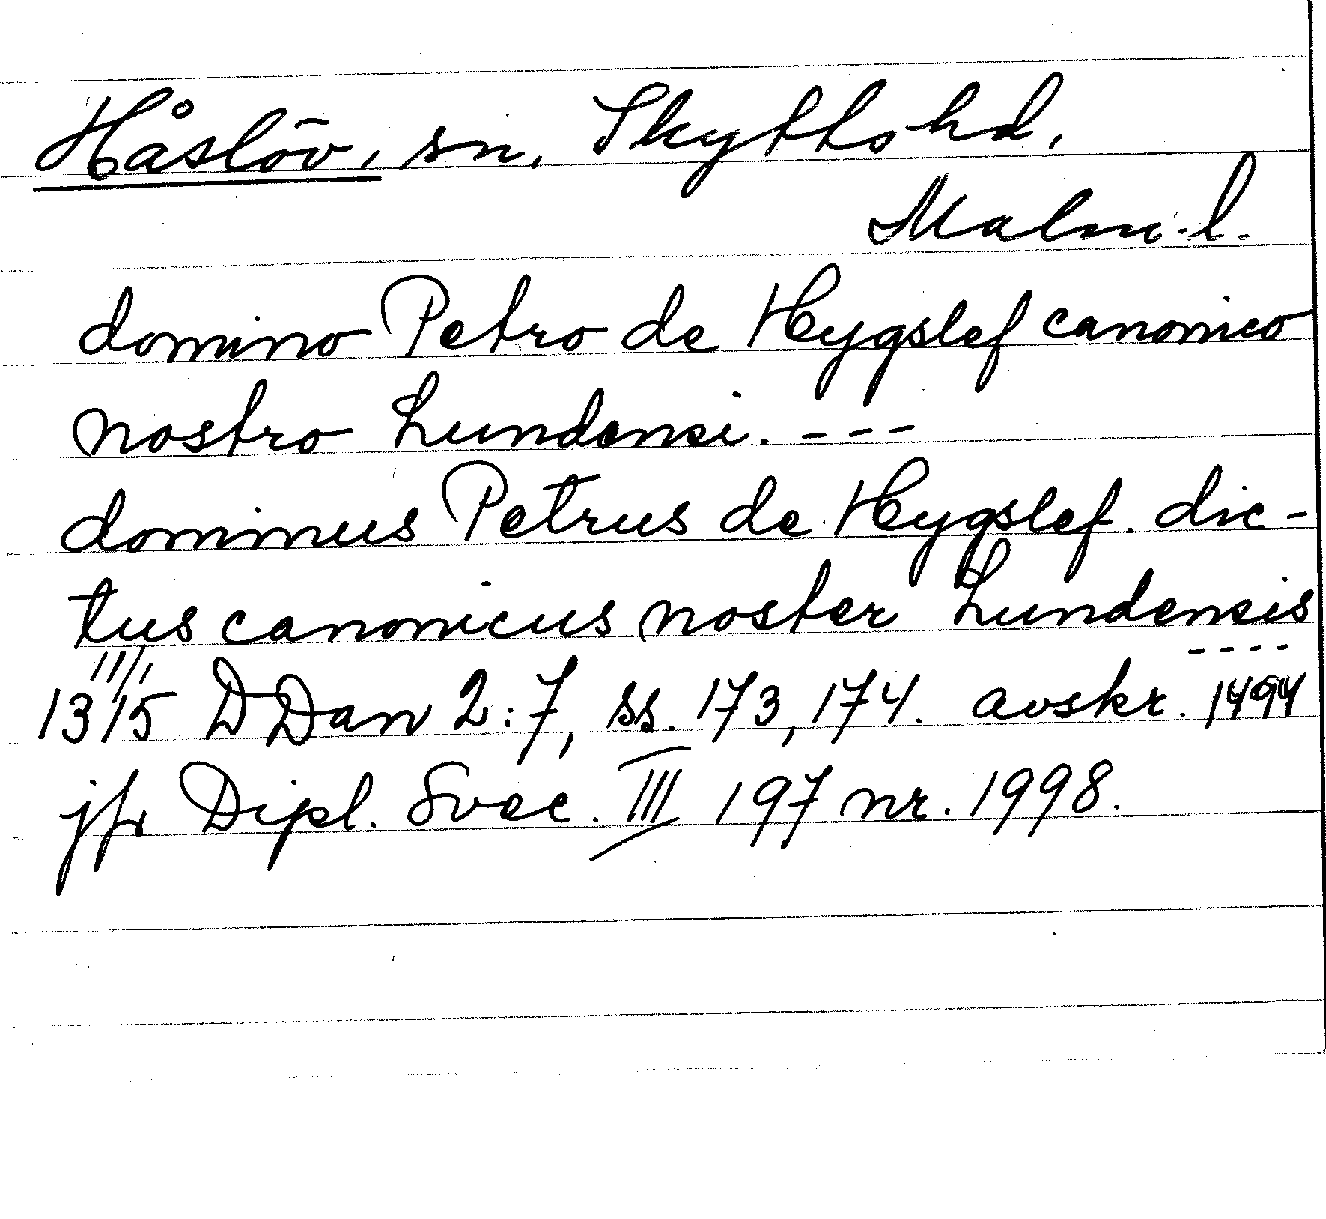 Håslöv, sn, Skyttshd,
Malm.l.
domino Petro de Hygslef canonico
nostro Lundensi. ---
dominus Petrus de Hygslef dic-
tus canonicus noster Lundensis
----
1315 DDan 2:7, ss. 173, 174. avskr. 1494
jfr Dipl. Svec. III 197 nr. 1998.